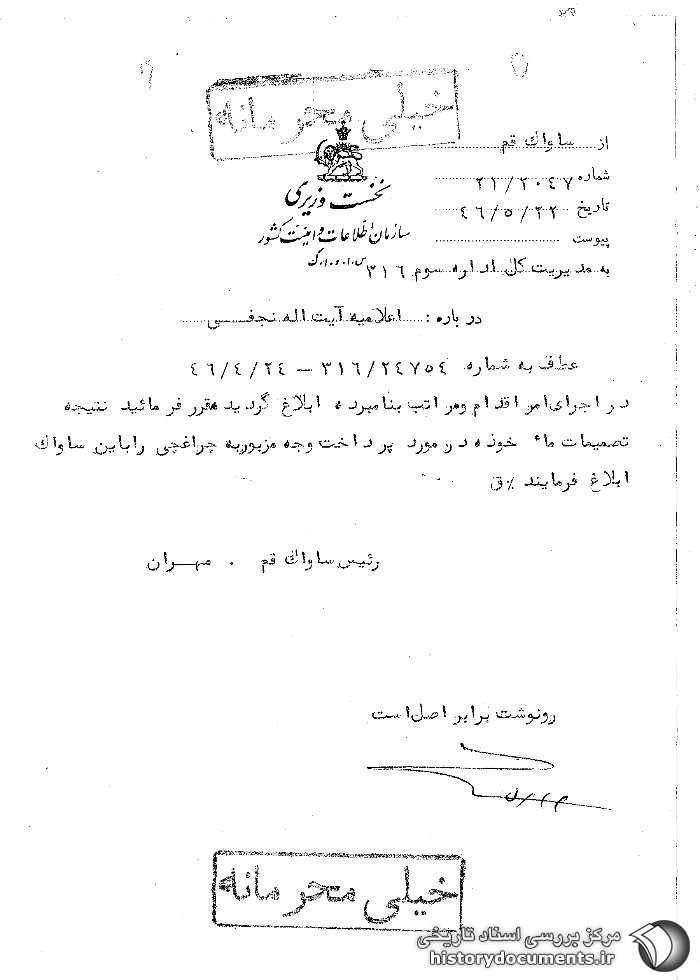 خیلی محرمانه
از ساواك قم
نخست وزیری
شماره ۲۱/۲۰۴۷
تاریخ ۴۶/۵/۲۲
سازمان اطلاعات و امنیت کشور
پیوست
به مدیریت كل اداره سوم ۳۱۶
درباره : اعلامیه آیت اله نجفی
عطف به شماره ۳۱۶/۲۴۷۵۴ – ۴۶/۴/۲۴
در اجرای امر اقدام ومراتب بنامبرده ابلاغ گردید مقرر فرمائید نتیجه
تصمیمات ماءخوذه در مورد پرداخت وجه مزبوربه چراغچی راباین ساواك
ابلاغ فرمایند ٪ق
رئیس ساواك قم . مهران
رونوشت برابر اصل است
خیلی محرمانه
مرکز بررسی اسناد تاریخی
historydocuments.ir